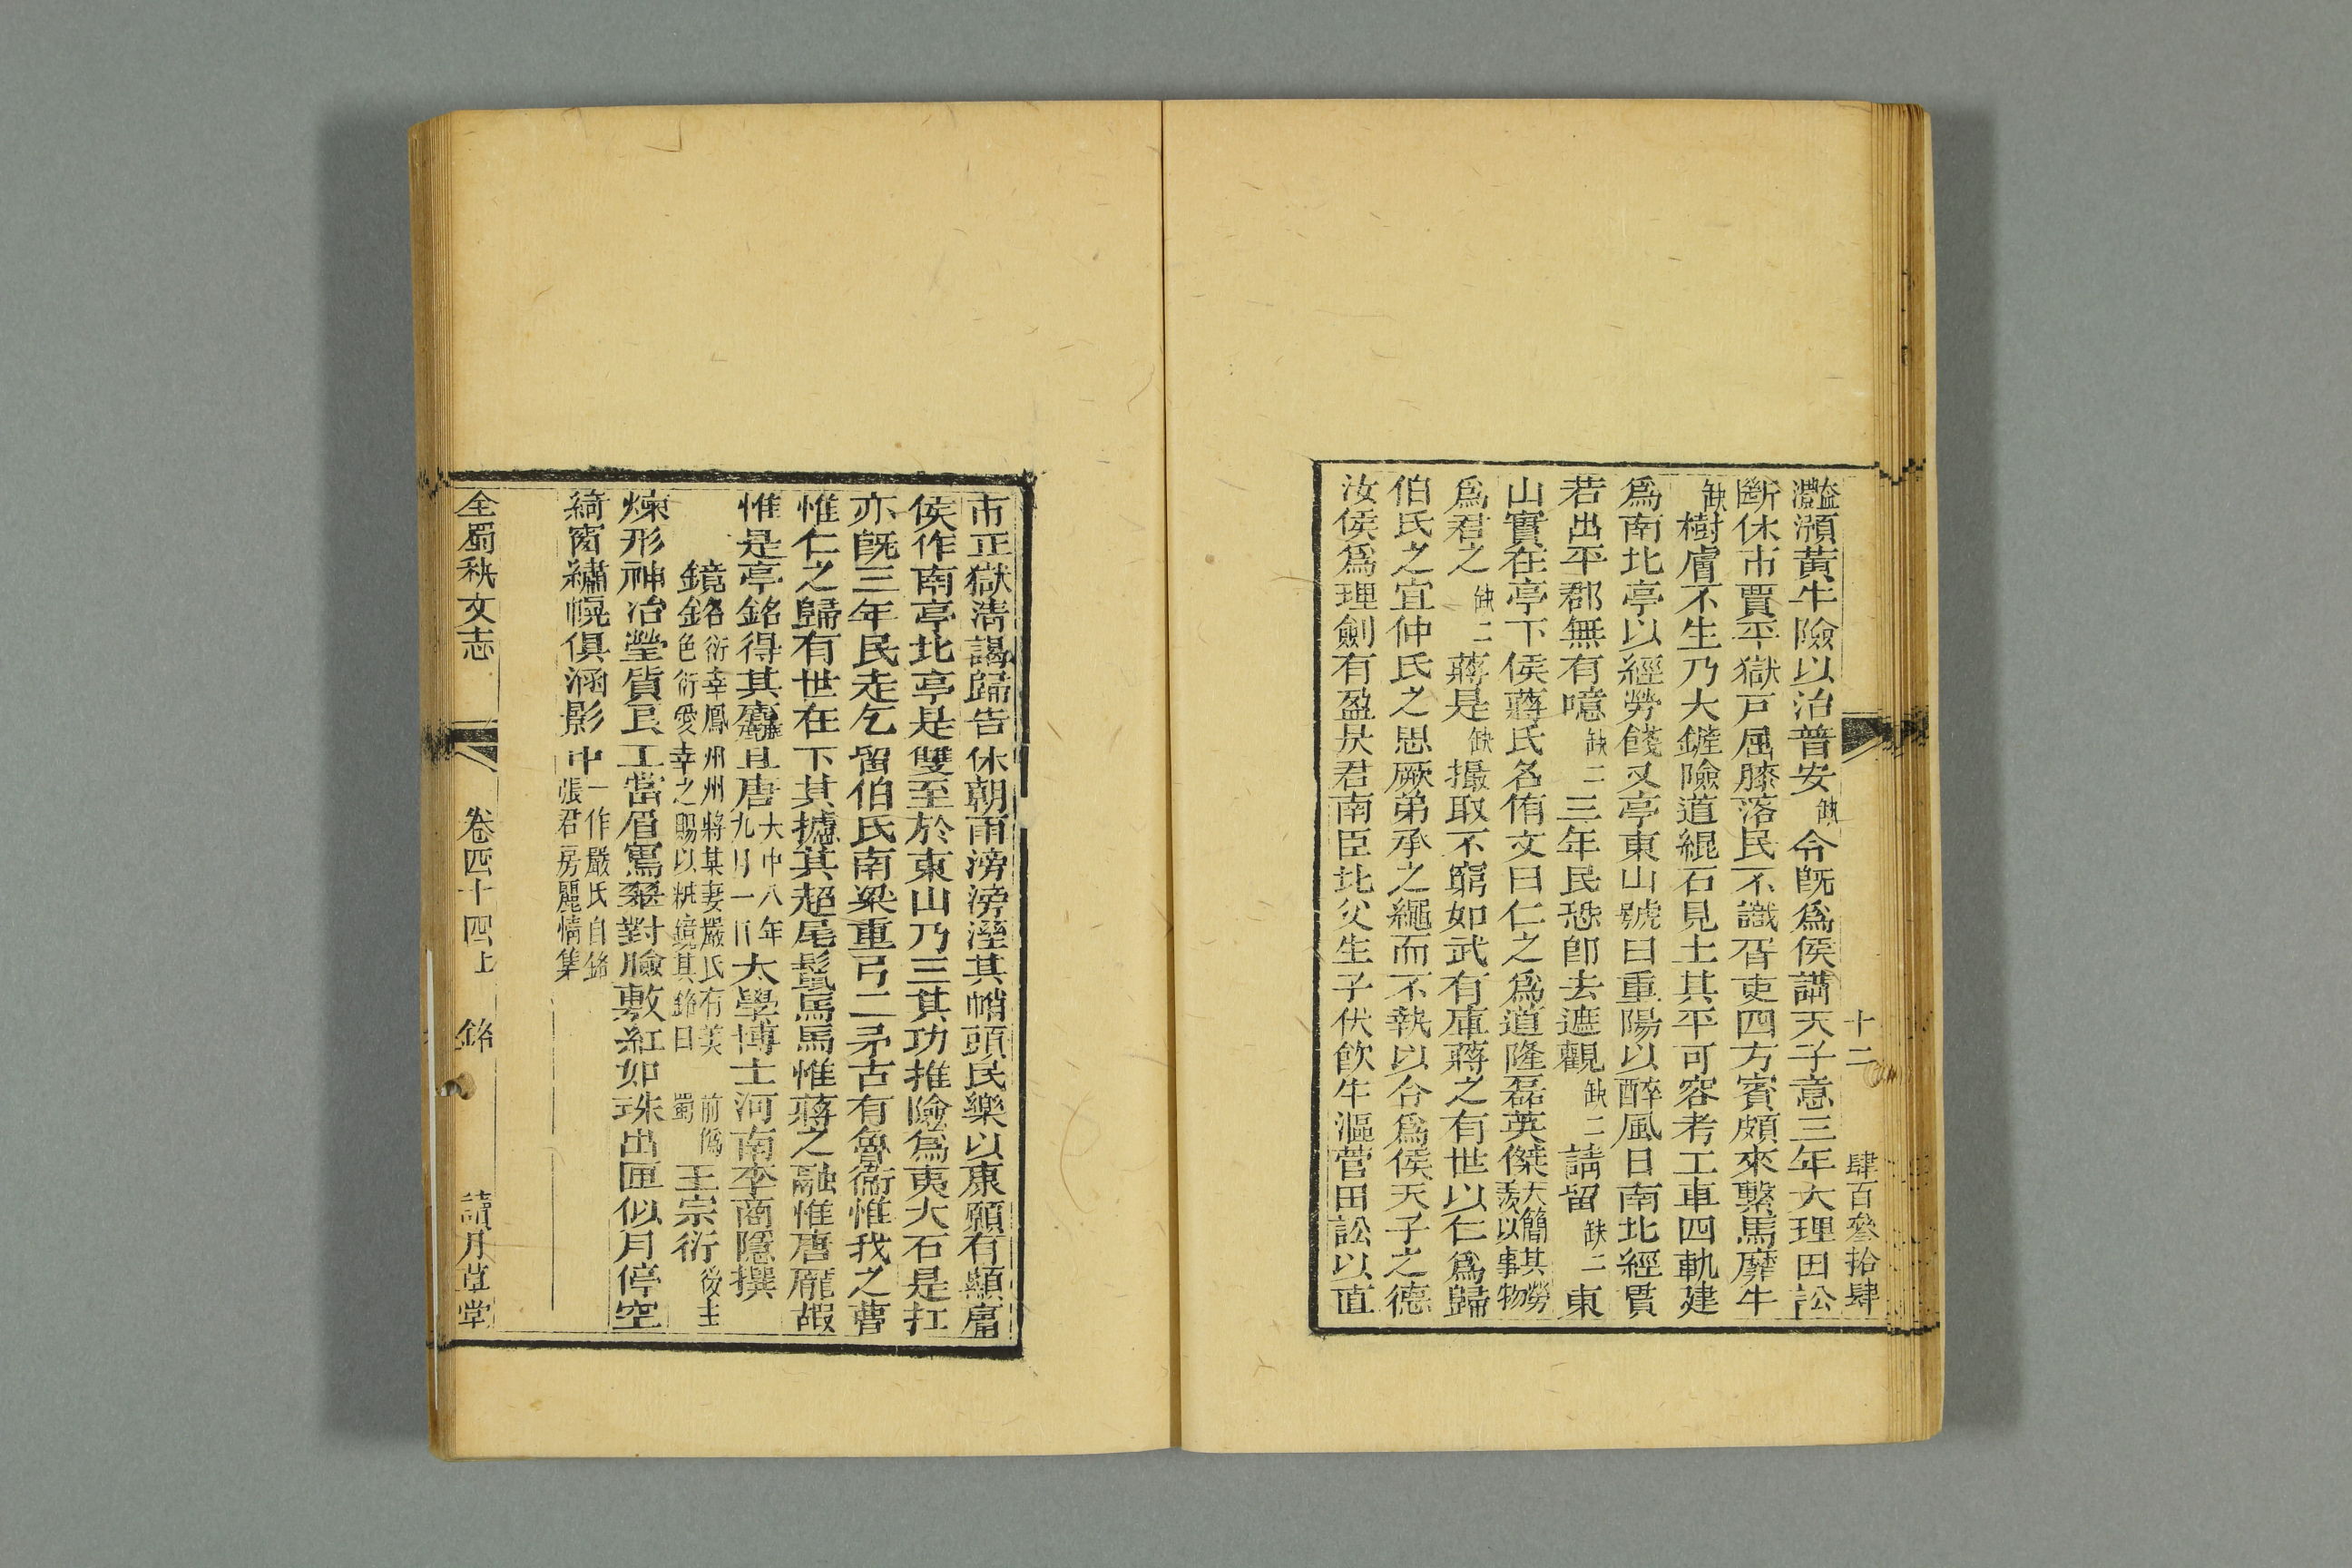 十二 肆百參拾肆
灩澦黃牛險以治普安缺令旣爲侯講天子意三年大理田訟
斷休市賈平獄戸屈膝落民不識胥吏四方賓頗來繫馬靡牛
缺樹膚不生乃大鏟險道緄石見土其平可容考工車四軌建
爲南北亭以經勞餞又亭東山號曰重陽以醉風日南北經貫
若出平郡無有噫缺二三年民恐卽去遮觀缺二請留缺二東
山實在亭下侯蔣氏名侑文曰仁之爲道隆磊英傑天簡其勞羨以事物
爲君之缺二蔣是缺撮取不窮如武有庫蔣之有世以仁爲歸
伯氏之宜仲氏之思厥弟承之繩而不執以合爲侯天子之德
汝侯爲理劍有盈昃君南臣北父生子伏飲牛漚菅田訟以直
市正獄淸謁歸告休朝雨滂滂溼其幓頭民樂以康願有顯庸
侯作南亭北亭是雙至於東山乃三其功推險爲夷大石是扛
亦旣三年民走乞留伯氏南梁重弓二矛古有魯衞惟我之曹
惟仁之歸有世在下其攄其超尾鬣馬馬惟蔣之融惟唐龐嘏
惟是亭銘得其麤且唐大中八年九月一日太學博士河南李商隱撰
鏡銘衍幸鳳州州將某妻嚴氏有美色衍愛幸之賜以粧鏡其銘曰 前僞蜀王宗衍後主
煉形神冶瑩質良工當眉寫翠對臉敷紅如珠出匣似月停空
綺窗繡幌俱涵影中一作嚴氏自銘張君房麗情集
全蜀秇文志 卷四十四上 銘 讀月草堂